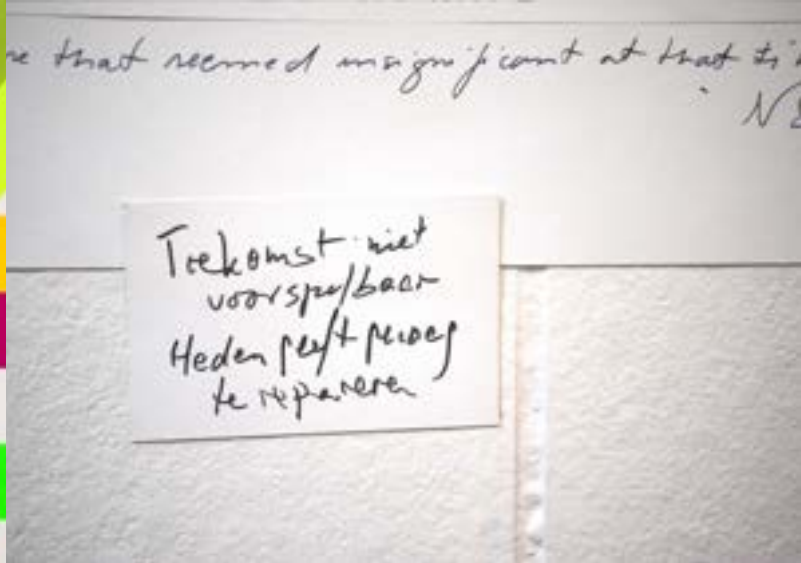 that seemed insignificant at that
Toekomst niet
voorspelbaar
Heden geeft genoeg
te repareren